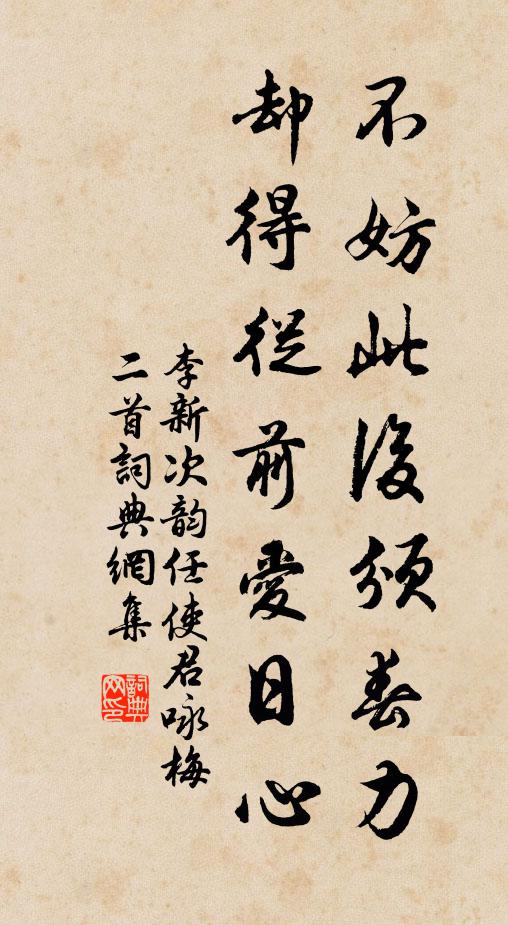 不妨此後須春力
却得從前愛日心
李新次韵任使君咏梅
二首詞典網集
詞典
网印